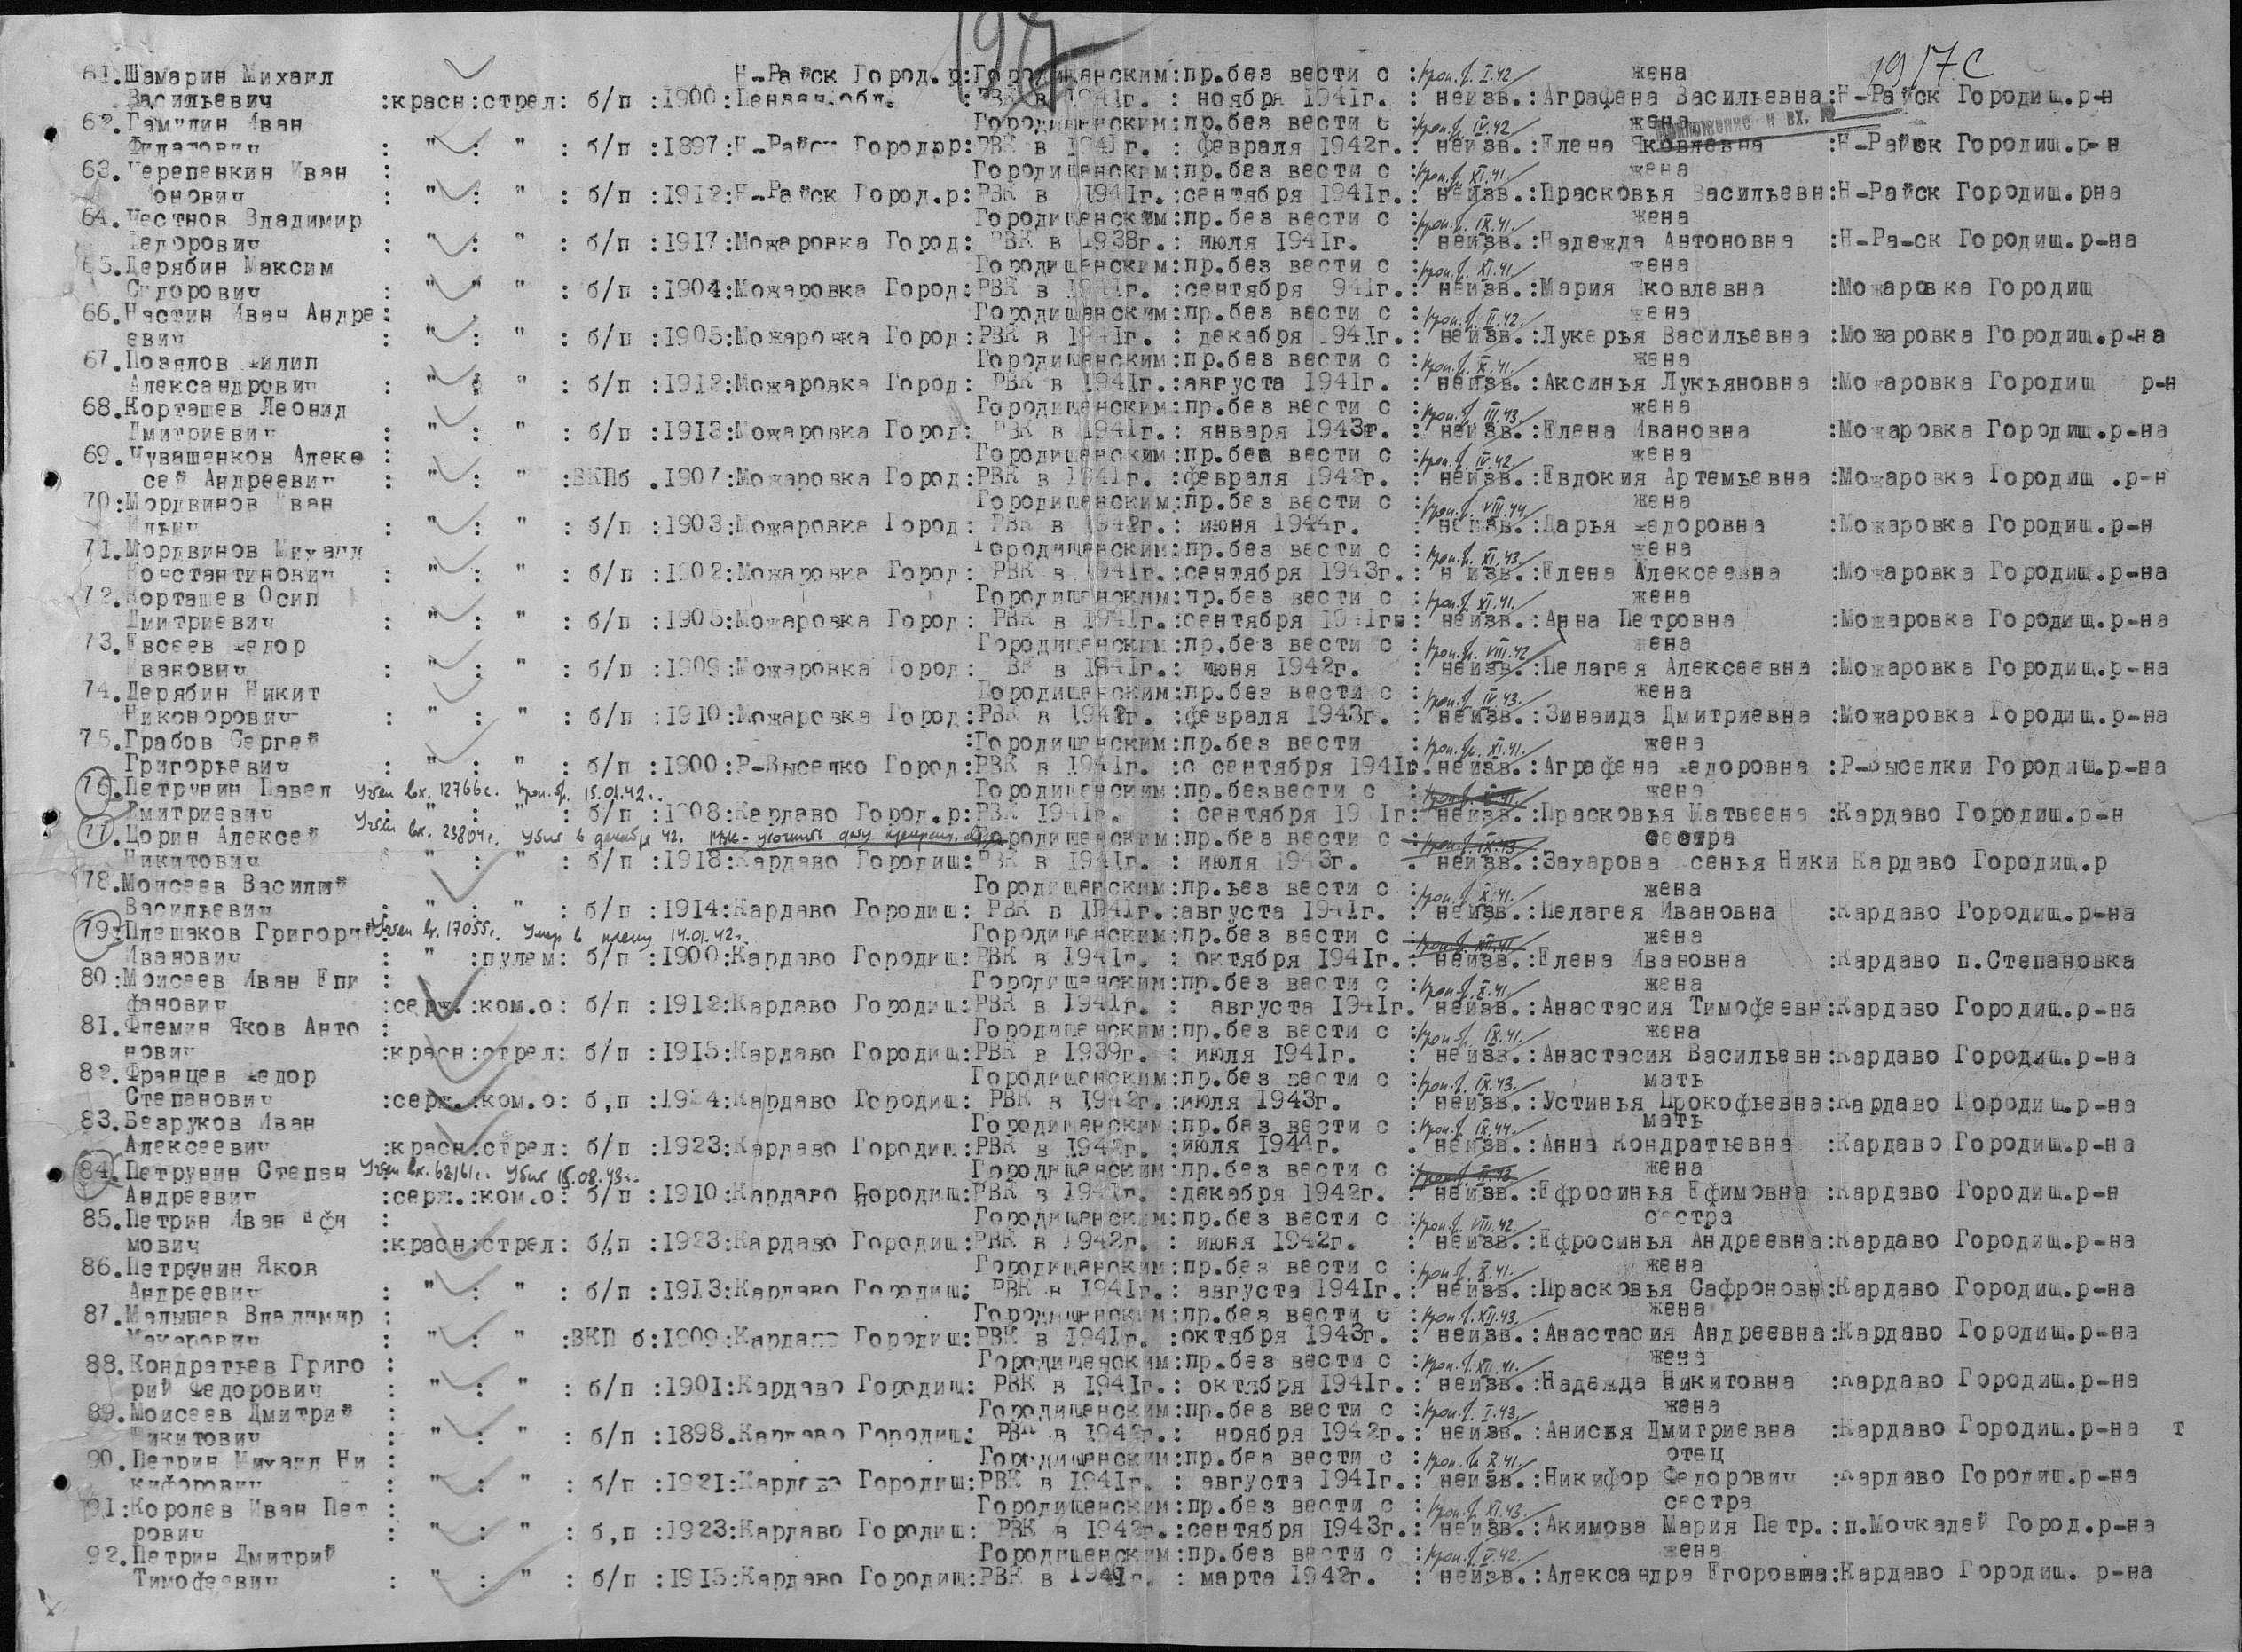 197
1917с
61.Шамарин Михаил Н-Райск Город.р:Городищенским:пр.без вести с :проп.б. I.42 жена
Васильевич :красн:стрел: б/п :1900:Пензен.обл. :РВК в 1941г. : ноября 1941г. : неизв.:Аграфена Васильевна:Н-Райск Городищ.р-н
62. Иван Городищенским:пр.без вести с :проп.б. IV.42 жена
Приложение к вх. №
Филатович : " : " : б/п :1897:Н-Райск Город.р:РВК в 1941г. : февраля 1942г. : неизв.:Елена Яковлевна :Н-Райск Городищ.р-н
63.Черепенкин Иван : Городищенским:пр.без вести с :проп.б. XI.41 жена
: " : " : б/п :1912:Н-Райск Город.р:РВК в 1941г.:сентября 1941г.: неизв.:Прасковья Васильевн:Н-Райск Городищ.рна
64.Честнов Владимир Городищенским:пр.без вести с :проп.б. IX.41. жена
Федорович : " : " : б/п :1917:Можаровка Город: РВК в 1938г.: июля 1941г. : неизв.:Надежда Антоновна :Н-Ра-ск Городищ.р-на
65.Дерябин Максим Городищенским:пр.без вести с :проп.б. XI.41. жена
Сидорович : " " " : б/п :1904:Можаровка Город:РВК в 1941г. :сентября 941г.: неизв.:Мария Яковлевна :Можаровка Городищ
66.Настин Иван Андре: Городищенским:пр.без вести с :проп.б. II.42. жена
евич : " : " : б/п :1905:Можаровка Город:РВК в 1941г. : декабря 1941г.: неизв.:Лукерья Васильевна :Можаровка Городищ.р-на
67.Позялов Филип Городищенским:пр.без вести с :проп.б. X.41. жена
Александрович : " : " : б/п :1912:Можаровка Город: РВК в 1941г.:августа 1941г. : неизв.:Аксинья Лукьяновна :Можаровка Городищ р-н
68.Корташев Леонид Городищенским:пр.без вести с :проп.б. III.43 жена
Дмитриевич : " : " : б/п :1913:Можаровка Город: РВК в 1941г.: января 1943г. : неизв.:Елена Ивановна :Можаровка Городищ.р-на
69.Чувашенков Алекс : Городищенским:пр.без вести с :проп.б. IV.42. жена
сей Андреевич : " : " :ВКПб .1907:Можаровка Город:РВК в 1941г. :февраля 1942г. : неизв.:Евдокия Артемьевна :Можаровка Городищ .р-н
70:Мордвинов Иван Городищенским:пр.без вести с :проп.б. VIII.44 жена
Ильич : " : " : б/п :1903:Можаровка Город: РВК в 1942г.: июня 1944г. : неизв.:Дарья Федоровна :Можаровка Городищ.р-н
71.Мордвинов Михаил Городищенским:пр.без вести с :проп.б. XI.43. жена
Константинович : " : " : б/п :1902:Можаровка Город: РВК в 1941г.:сентября 1943г.: н изв.:Елена Алексеевна :Можаровка Городищ.р-на
72.Корташев Осип Городищенским:пр.без вести с :проп.б. XI.41. жена
Дмитриевич : " : " : б/п :1905:Можаровка Город: РВК в 1941г.:сентября 1941г: неизв.:Анна Петровна :Можаровка Городищ.р-на
73.Евсеев Федор Городищенским:пр.без вести с :проп.б. VIII.42 жена
Иванович : " : " : б/п :1909:Можаровка Город: ВК в 1941г.: июня 1942г. : неизв.:Пелагея Алексеевна :Можаровка Городищ.р-на
74.Дерябин Никит Городищенским:пр.без вести с :проп.б. IV.43. жена
Никонорович : " : " : б/п :1910:Можаровка Город:РВК в 1942г. :февраля 1943г. : неизв.:Зинаида Дмитриевна :Можаровка Городищ.р-на
75.Грабов Сергей :Городищенским:пр.без вести :проп.б. XI.41. жена
Григорьевич : " : " : б/п :1900:Р-Выселко Город:РВК в 1941г. :с сентября 1941г.неизв.:Аграфена Федоровна :Р-Выселки Городищ.р-на
76.Петрунин Павел Учтен вх. 12766с. проп.б. 15.01.42г. Городищенским:пр.безвести с : жена
Дмитриевич : " : " : б/п :1908:Кардаво Город.р:РВК 1941г. : сентября 19 1г: неизв.:Прасковья Матвеевна :Кардаво Городищ.р-н
77.Цорин Алексей Учтен вх. 23804с. Убит в декабре 42. Городищенским:пр.без вести с : сестра
Никитович " : " : б/п :1918:Кардаво Городищ:РВК в 1941г. : июля 1943г. . неизв.:Захарова сенья Ники Кардаво Городищ.р
78.Моисеев Василий Городищенским:пр.без вести с :проп.б. X.41. жена
Васильевич : " : " : б/п :1914:Кардаво Городищ: РВК в 1941г.:августа 1941г. : неизв.:Пелагея Ивановна :Кардаво Городищ.р-на
79:Плешаков Григори Учтен вх. 17055с. Умер в плену 14.01.42г. Городищенским:пр.без вести с : жена
Иванович : " :пулем: б/п :1900:Кардаво Городищ:РВК в 1941г. : октября 1941г.: неизв.:Елена Ивановна :Кардаво п.Степановка
80:Моисеев Иван Епи : Городищенским:пр.без вести с :проп.б. X.41 жена
фанович :серж.:ком.о: б/п :1912:Кардаво Городищ:РВК в 1941г. : августа 1941г. неизв.:Анастасия Тимофеевн:Кардаво Городищ.р-на
81.Флемин Яков Анто : Городищенским:пр.без вести с :проп.б. IX.41. жена
нович :красн:стрел: б/п :1915:Кардаво Городищ:РВК в 1939г. : июля 1941г. . неизв.:Анастасия Васильевн:Кардаво Городищ.р-на
82.Францев Федор Городищенским:пр.без вести с :проп.б. IX.43. мать
Степанович :серж.:ком.о: б,п :1924:Кардаво Городищ: РВК в 1942г.:июля 1943г. : неизв.:Устинья Прокофьевна:Кардаво Городищ.р-на
83.Безруков Иван Городищенским:пр.без вести с :проп.б. IX.44. мать
Алексеевич :красн:стрел: б/п :1923:Кардаво Городищ:РВК в 1942г. :июля 1944г. . неизв.:Анна Кондратьевна :Кардаво Городищ.р-на
84.Петрунин Степан Учтен вх. 62161с. Убит 15.08.43г. Городищенским:пр.без вести с : жена
Андреевич :серж.:ком.о: б/п :1910:Кардаво Городищ:РВК в 1941г. :декабря 1942г. : неизв.:Ефросинья Ефимовна :Кардаво Городищ.р-н
85.Петрин Иван фи : Городищенским:пр.без вести с :проп.б. VIII.42. сестра
мович :красн:стрел: б/п :1923:Кардаво Городищ:РВК в 1942г. : июня 1942г. : неизв.:Ефросинья Андреевна:Кардаво Городищ.р-на
86.Петрунин Яков Городищенским:пр.без вести с :проп.б. X.41. жена
Андреевич : " : " : б/п :1913:Кардаво Городищ: РВК в 1941г.: августа 1941г.: неизв.:Прасковья Сафроновн:Кардаво Городищ.р-на
87.Малышев Владимир : Городищенским:пр.без вести с :проп.б. XII.43. жена
Макарович : " : " :ВКП б:1909:Кардаво Городищ:РВК в 1941г. :октября 1943г. : неизв.:Анастасия Андреевна:Кардаво Городищ.р-на
88.Кондратьев Григо : Городищенским:пр.без вести с :проп.б. XII.41. жена
рий Федорович : " : " : б/п :1901:Кардаво Городищ: РВК в 1941г.: октября 1941г.: неизв.:Надежда Никитовна :Кардаво Городищ.р-на
89.Моисеев Дмитрий : Городищенским:пр.без вести с :проп.б. I.43. жена
Никитович : " : " : б/п :1898.Кардаво Городищ: РВК в 1942г.: ноября 1942г.: неизв.:Анисья Дмитриевна :Кардаво Городищ.р-на т
90.Петрин Михаил Ни : Городищенским:пр.без вести с :проп.б. X.41. отец
кифорович : " : " : б/п :1921:Кардаво Городищ:РВК в 1941г. : августа 1941г.: неизв.:Никифор Федорович :Кардаво Городищ.р-на
91:Королев Иван Пет : Городищенским:пр.без вести с :проп.б. XI.43. сестра
рович : " : " : б,п :1923:Кардаво Городищ: РВК в 1942г.:сентября 1943г.: неизв.:Акимова Мария Петр.:п.Мочкадей Город.р-на
92.Петрин Дмитрий Городищенским:пр.без вести с :проп.б. V.42. жена
Тимофеевич : " : " : б/п :1915:Кардаво Городищ:РВК в 1941г. : марта 1942г. : неизв.:Александра Егоровна:Кардаво Городищ. р-на